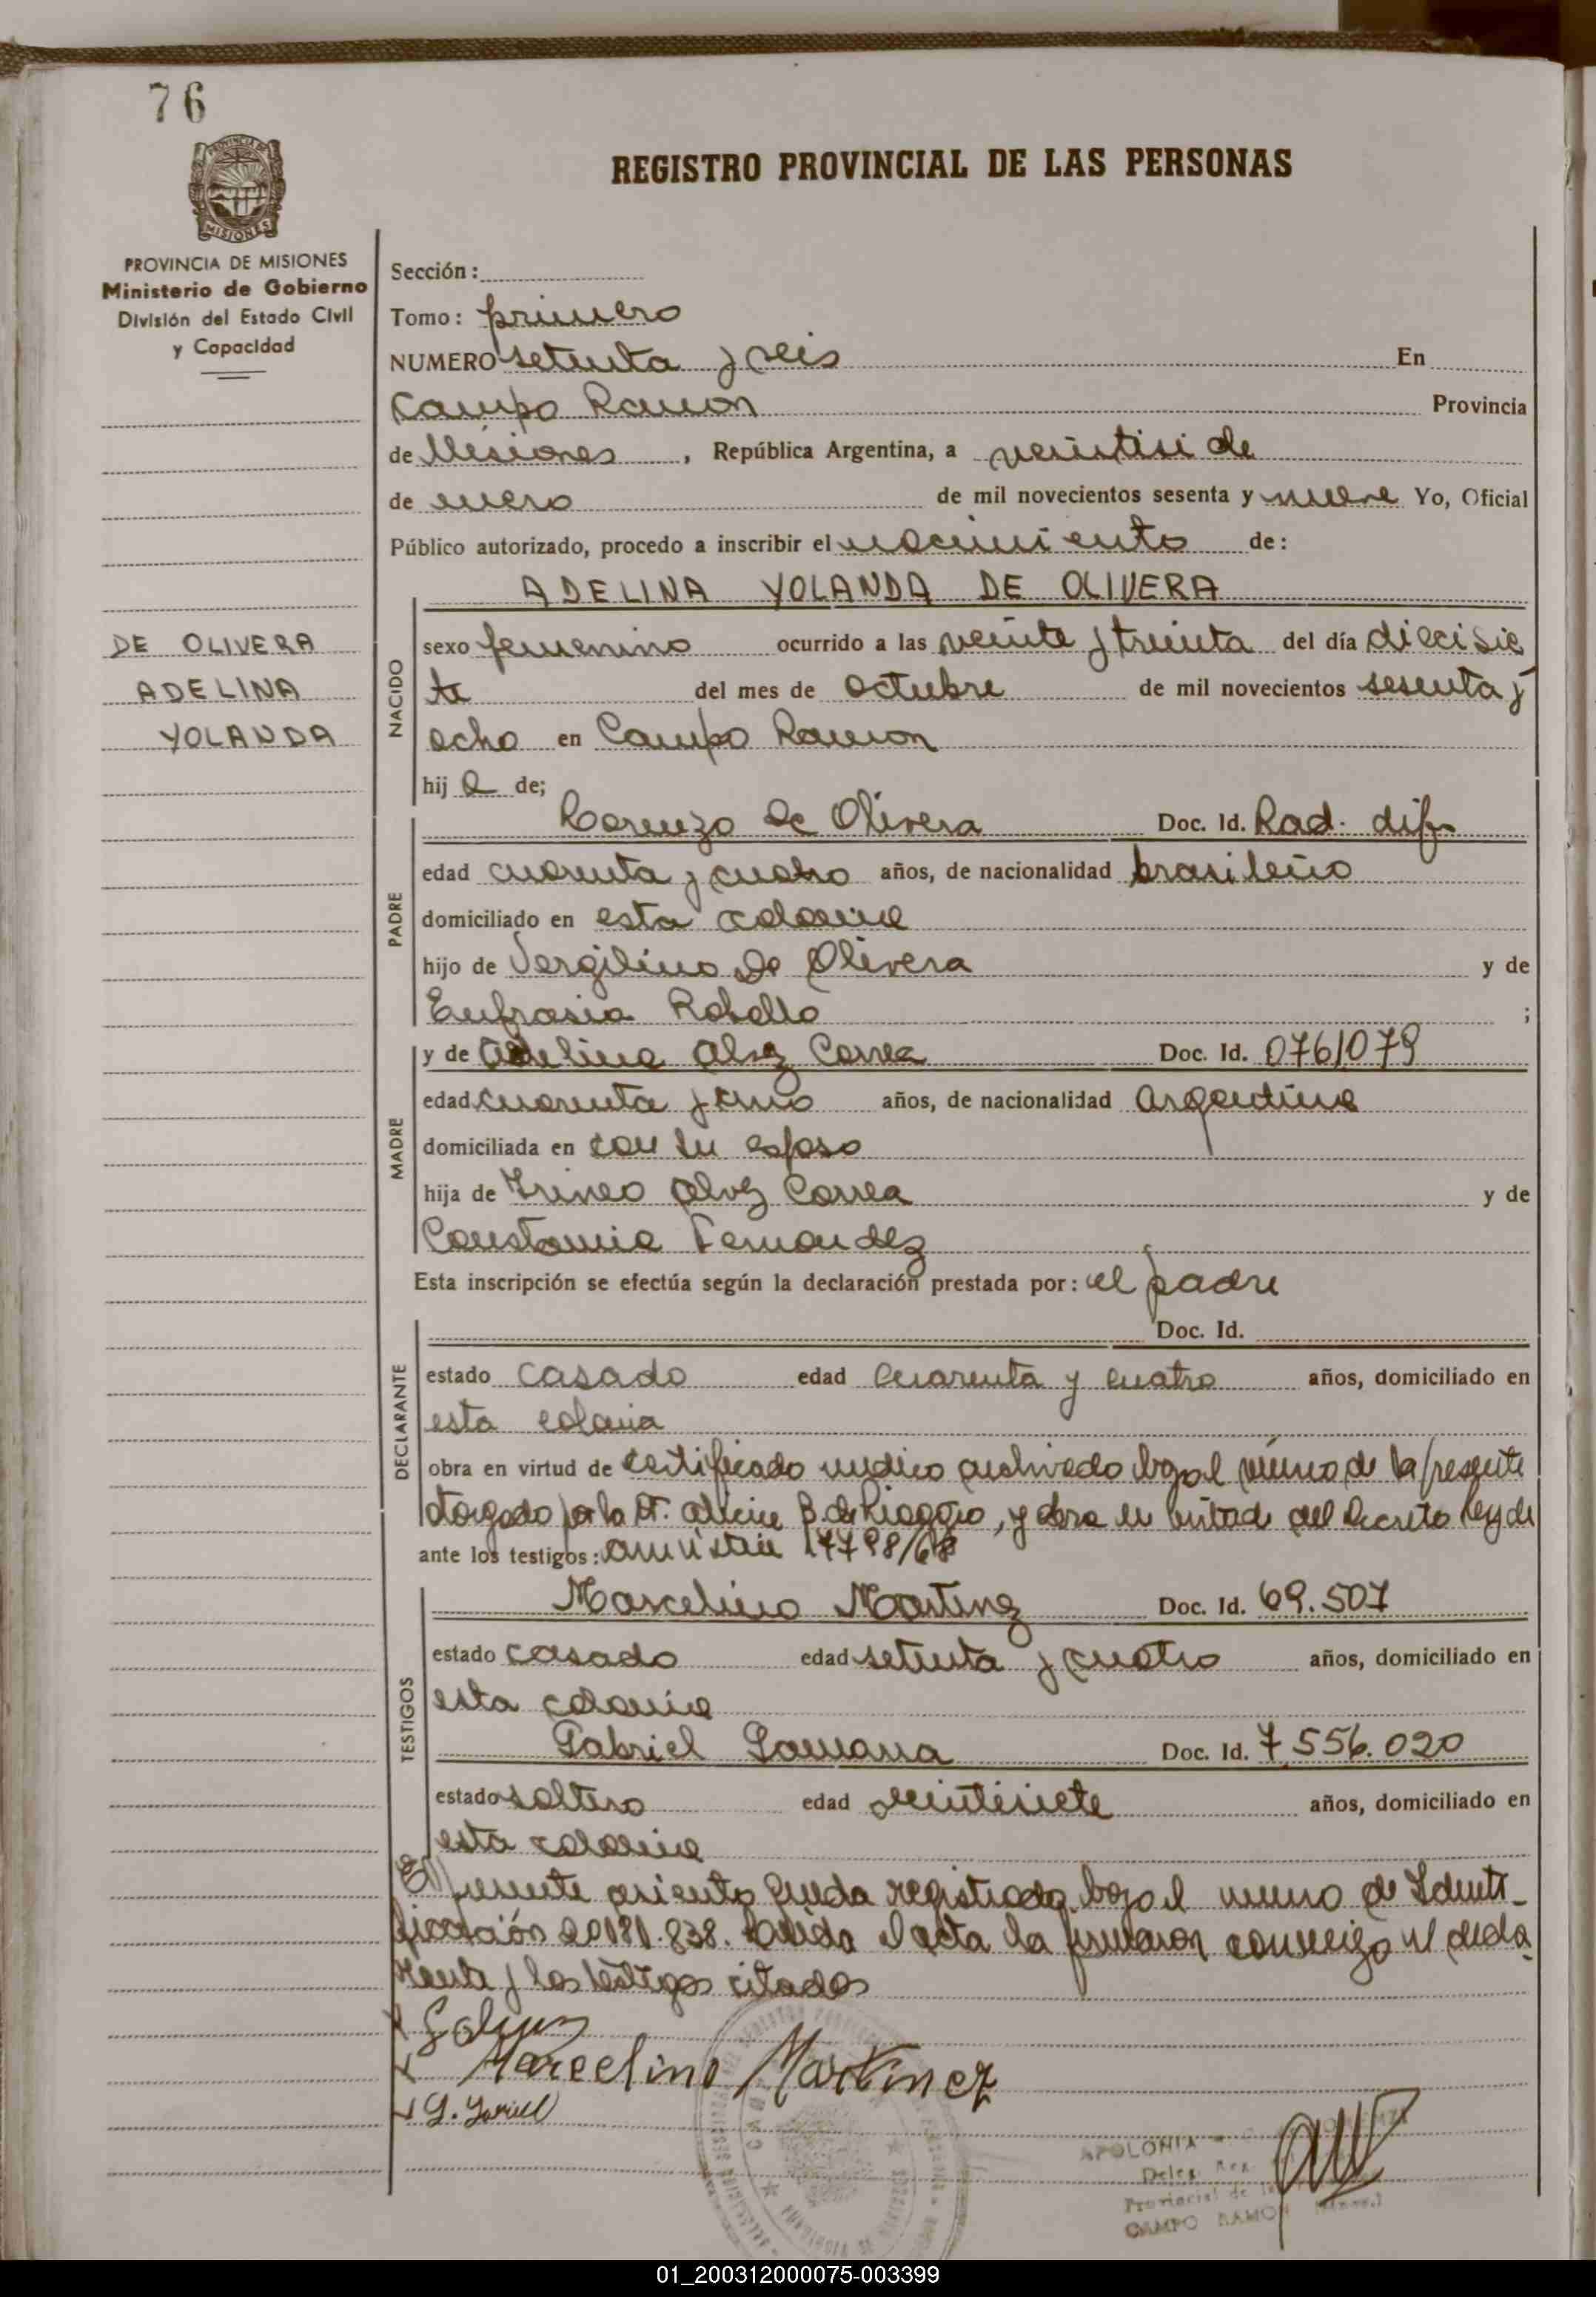 76
PROVINCIA DE
MISIONES
REGISTRO PROVINCIAL DE LAS PERSONAS
PROVINCIA DE MISIONES
Ministerio de Gobierno
División del Estado Civil
y Capacidad
Sección:
Tomo: primero
NUMERO setenta y seis En
Campo Ramon Provincia
de Misiones, República Argentina, a veintisi de
de enero de mil novecientos sesenta y nueve Yo, Oficial
Público autorizado, procedo a inscribir el nacimiento de:
ADELINA YOLANDA DE OLIVERA
DE OLIVERA
ADELINA
YOLANDA
NACIDO
sexo femenino ocurrido a las veinte y treinta del día diecisie
te del mes de octubre de mil novecientos sesenta y
ocho en Campo Ramon
hij a de;
PADRE
Lorenzo de Olivera Doc. Id. Rad. dif
edad cuarenta y cuatro años, de nacionalidad brasileño
domiciliado en esta colonia
hijo de Vergilino de Olivera y de
Eufrasia Rabello ;
MADRE
y de Adelina Alvez Correa Doc. Id. 0761079
edad cuarenta y uno años, de nacionalidad argentina
domiciliada en con su esposo
hija de Irineo Alvez Correa y de
Constancia Fernandez
Esta inscripción se efectúa según la declaración prestada por: el padre
Doc. Id.
DECLARANTE
estado casado edad cuarenta y cuatro años, domiciliado en
esta colonia
obra en virtud de certificado medico archivado bajo el número de la presente
otorgado por la Pt. Alicia B. de , y obra en virtud del Decreto Ley de
ante los testigos: amnistia 17798/68
TESTIGOS
Marcelino Martinez Doc. Id. 69.507
estado casado edad setenta y cuatro años, domiciliado en
esta colonia
Gabriel Doc. Id. 7.556.020
estado soltero edad veintisiete años, domiciliado en
esta colonia
El presente asiento queda registrado bajo el numero de Identi-
ficación 20.181.838. Leida el acta la firmaron conmigo el decla-
rante y los testigos citados
Marcelino Martinez
APOLONIA
Deleg. Reg.
Provincial de las
CAMPO RAMON (Mnes.)
01_200312000075-003399